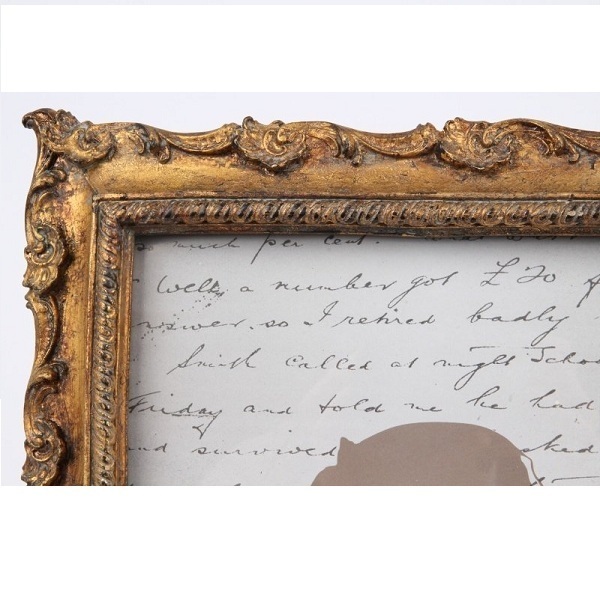 so much per cent.
Well, a number got £ 20
answer, so I retired badly
Smith called at night Schoo
Friday and told me he had
and survived sked